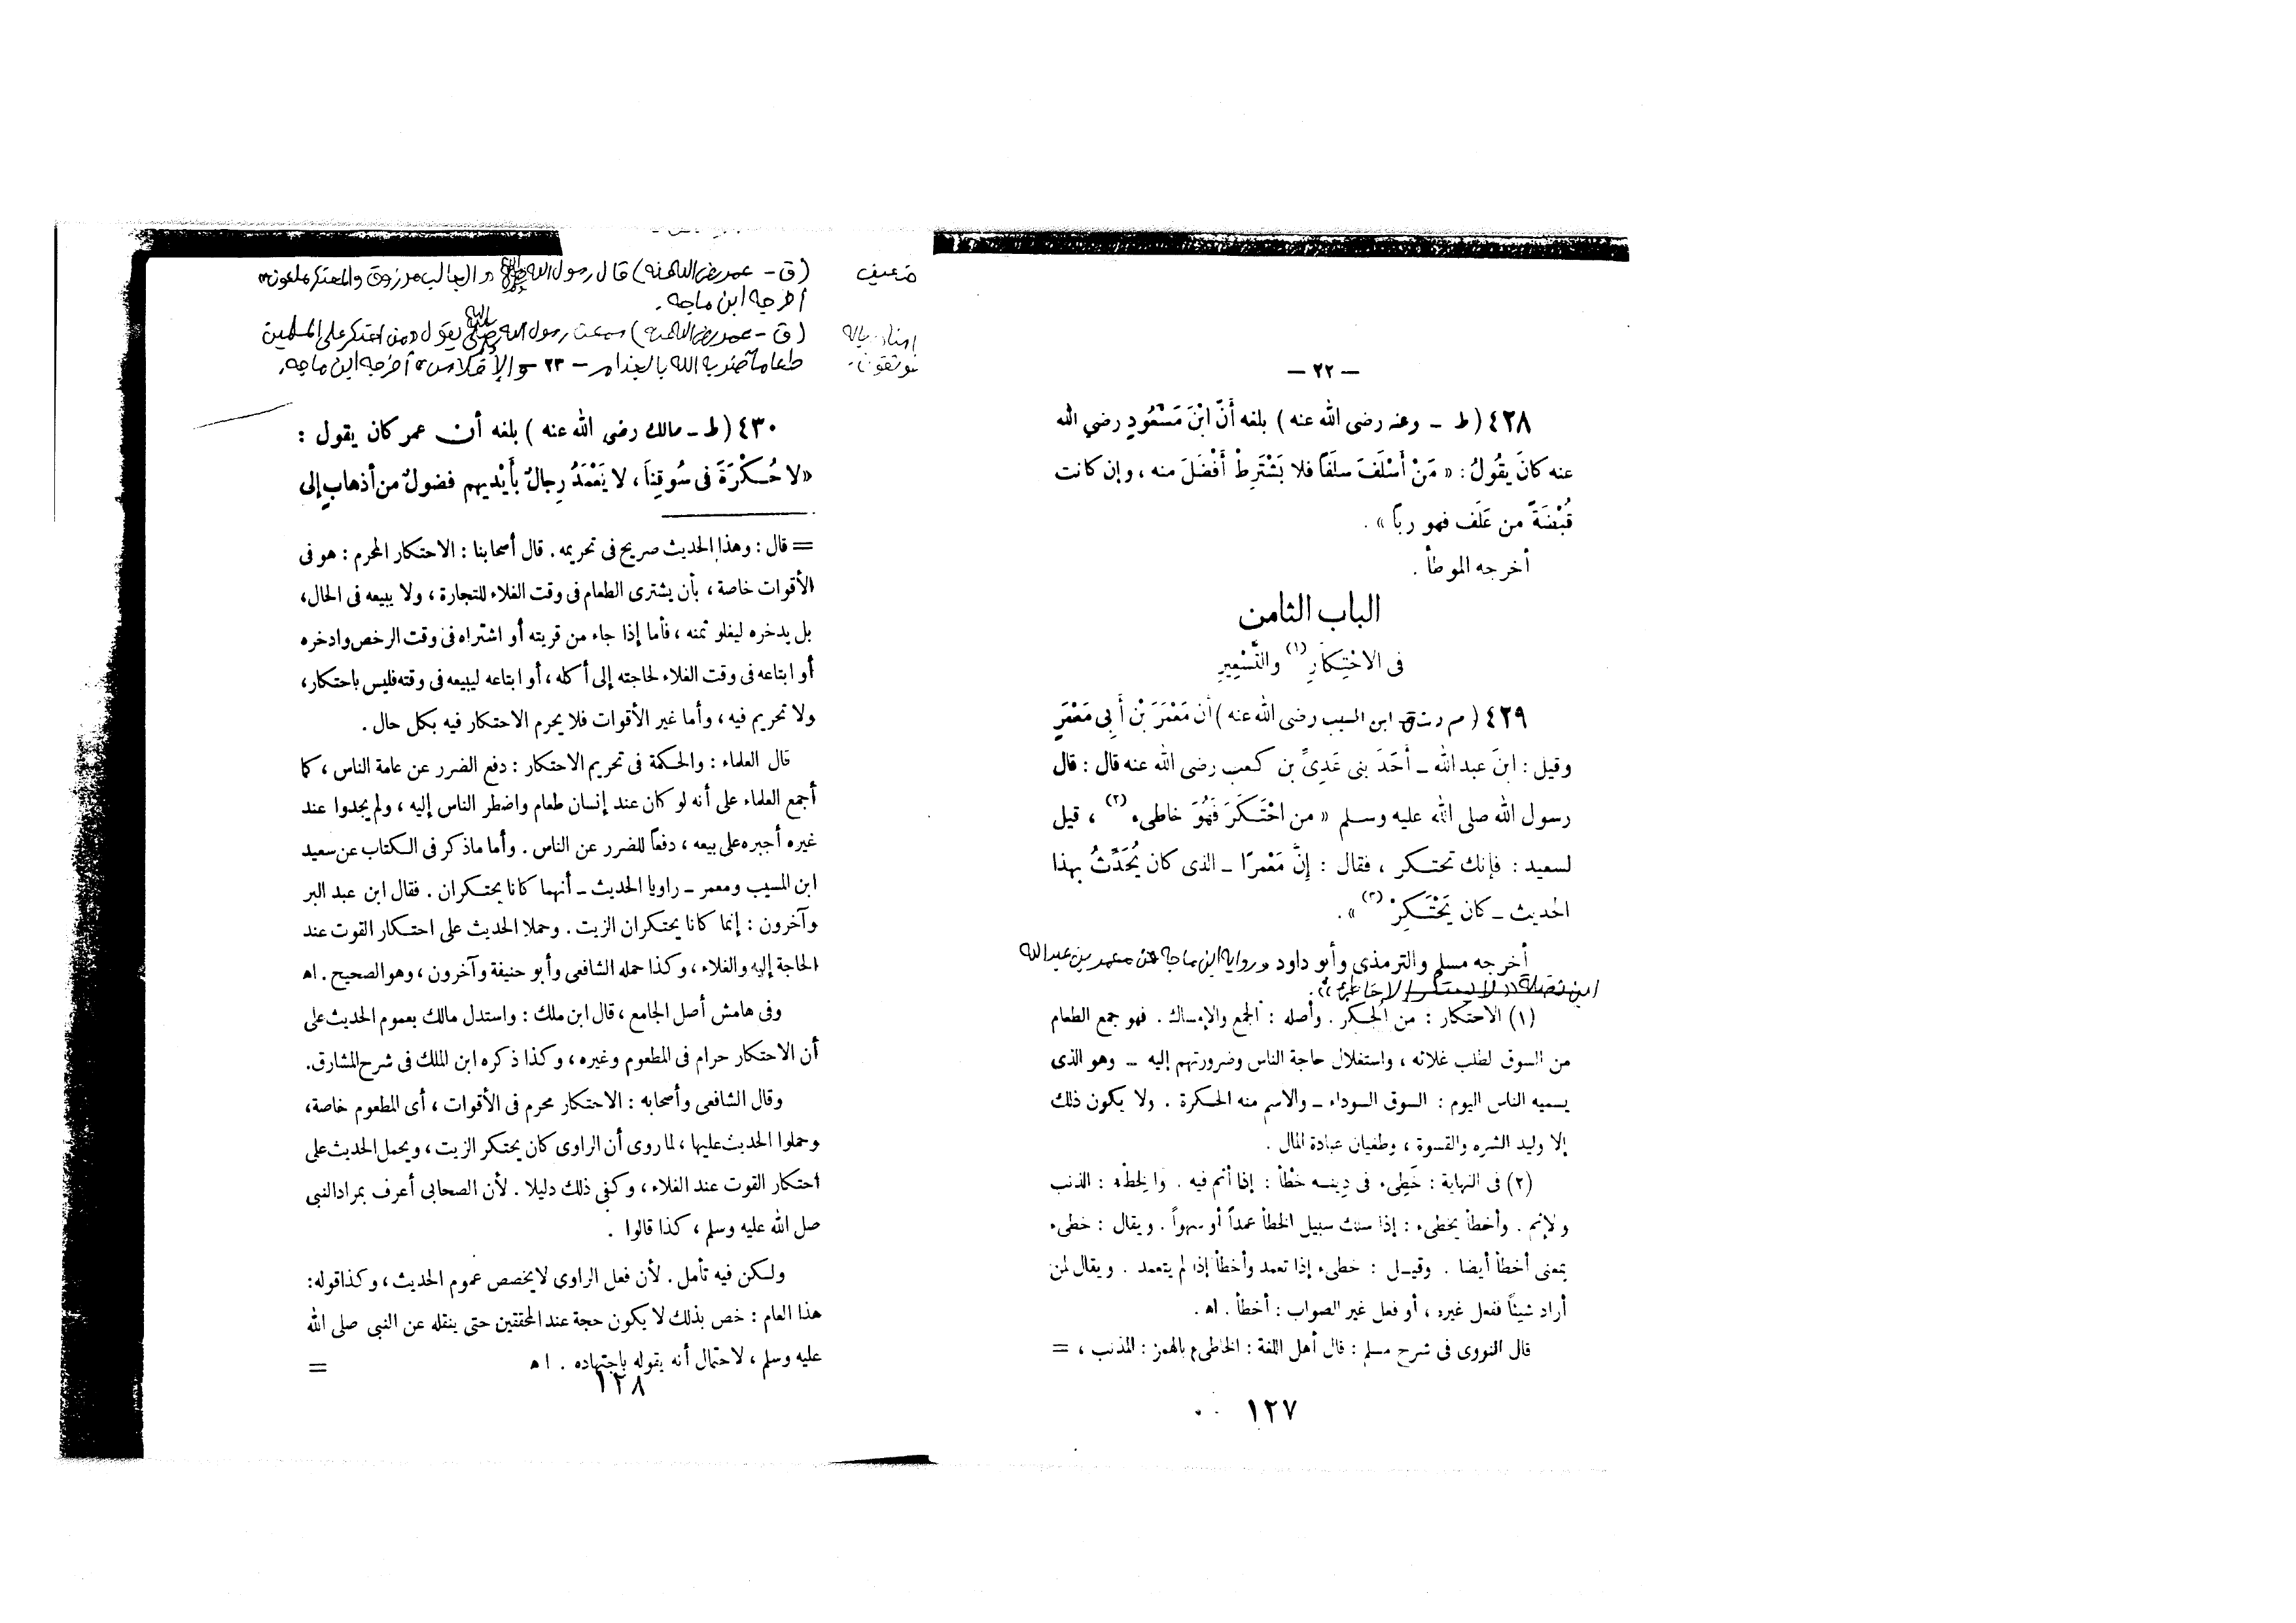 — ٢٢ —
٤٢٨ ( ط - وعنه رضى الله عنه ) بلغه أَنَّ ابْنَ مَسْعُودٍ رضي الله
عنه كانَ يقُولُ : « مَنْ أَسْلَفَ سلَفًا فلا يَشْتَرِطْ أَفْضَلَ منه ، وإن كانت
قُبْضَةً من عَلَف فهو رباً » .
أخرجه الموطأ .
الباب الثامن
فى الاحْتِكَارِ (١) والتَّسْعِيرِ
٤٢٩ ( م د ت ق ابن المسيب رضى الله عنه ) أن مَعْمَرَ بْن أَبِي مَعْمَرٍ
وقيل : ابنَ عبد الله - أَحَدَ بنى عَدِىِّ بن كعب رضى الله عنه قال : قال
رسول الله صلى الله عليه وسلم « من احْتَكَرَ فَهُوَ خاطىء (٢) ، قيل
لسعيد : فإنك تحتكر ، فقال : إِنَّ مَعْمرًا - الذى كان يُحَدِّثُ بهذا
الحديث - كان يَحْتَكِرْ (٣) » .
أخرجه مسلم والترمذى وأبو داود ورواية ابن ماجه عن معمر بن عبد الله
ابن نضلة « لا يحتكر إلا خاطئ » .
(١) الاحتكار : من الحكر . وأصله : الجمع والإمساك . فهو جمع الطعام
من السوق لطلب غلائه ، واستغلال حاجة الناس وضرورتهم إليه - وهو الذى
يسميه الناس اليوم : السوق السوداء - والاسم منه الحكرة . ولا يكون ذلك
إلا وليد الشره والقسوة ، وطغيان عبادة المال .
(٢) فى النهاية : خَطِىء فى دِينه خْطْأ : إذا أثم فيه . والخطْء : الذنب
ولإثم . وأخطأ يخطىء : إذا سلك سبيل الخطأ عمداً أو سهواً . ويقال : خطىء
بمعنى أخطأ أيضا . وقيل : خطىء إذا تعمد وأخطأ إذا لم يتعمد . ويقال لمن
أراد شيئاً ففعل غيره ، أو فعل غير الصواب : أخطأ . اه .
قال النووى فى شرح مسلم : قال أهل اللغة : الخاطىء بالهمز : المذنب ، =
١٢٧
ضعيف (ق - عمر رضي الله عنه) قال رسول الله ﷺ « الجالب مرزوق والمحتكر ملعون »
أخرجه ابن ماجه .
(ق - عمر رضي الله عنه) سمعت رسول الله ﷺ يقول « من احتكر على المسلمين
طعاما ضربه الله بالجذام - ٢٣ - والإفلاس » أخرجه ابن ماجه .
موثقون .
٤٣٠ ( ط - مالك رضى الله عنه ) بلغه أن عمر كان يقول :
« لا حُكْرَةَ فى سُوقِنَا ، لا يَعْمَدُ رِجالٌ بأَيْديهم فضولٌ من أذهابٍ إلى
= قال : وهذا الحديث صريح فى تحريمه . قال أصحابنا : الاحتكار المحرم : هو فى
الأقوات خاصة ، بأن يشترى الطعام فى وقت الغلاء للتجارة ، ولا يبيعه فى الحال ،
بل يدخره ليغلو ثمنه ، فأما إذا جاء من قريته أو اشتراه فى وقت الرخص وادخره
أو ابتاعه فى وقت الغلاء لحاجته إلى أكله ، أو ابتاعه ليبيعه فى وقته فليس باحتكار ،
ولا تحريم فيه ، وأما غير الأقوات فلا يحرم الاحتكار فيه بكل حال .
قال العلماء : والحكمة فى تحريم الاحتكار : دفع الضرر عن عامة الناس ، كما
أجمع العلماء على أنه لو كان عند إنسان طعام واضطر الناس إليه ، ولم يجدوا عند
غيره أجبره على بيعه ، دفعاً للضرر عن الناس . وأما ماذكر فى الكتاب عن سعيد
ابن المسيب ومعمر - راويا الحديث - أنهما كانا يحتكران . فقال ابن عبد البر
وآخرون : إنما كانا يحتكران الزيت . وحملا الحديث على احتكار القوت عند
الحاجة إليه والغلاء ، وكذا حمله الشافعى وأبو حنيفة وآخرون ، وهو الصحيح . اه
وفى هامش أصل الجامع ، قال ابن ملك : واستدل مالك بعموم الحديث على
أن الاحتكار حرام فى المطعوم وغيره ، وكذا ذكره ابن الملك فى شرح المشارق .
وقال الشافعى وأصحابه : الاحتكار محرم فى الأقوات ، أى المطعوم خاصة ،
وحملوا الحديث عليها ، لما روى أن الراوى كان يحتكر الزيت ، ويحمل الحديث على
احتكار القوت عند الغلاء ، وكفى ذلك دليلا . لأن الصحابى أعرف بمراد النبى
صل الله عليه وسلم ، كذا قالوا .
ولكن فيه تأمل . لأن فعل الراوى لايخصص عموم الحديث ، وكذا قوله :
هذا العام : خص بذلك لا يكون حجة عند المحققين حتى ينقله عن النبى صلى الله
عليه وسلم ، لاحتمال أنه يقوله باجتهاده . اه =
١٢٨